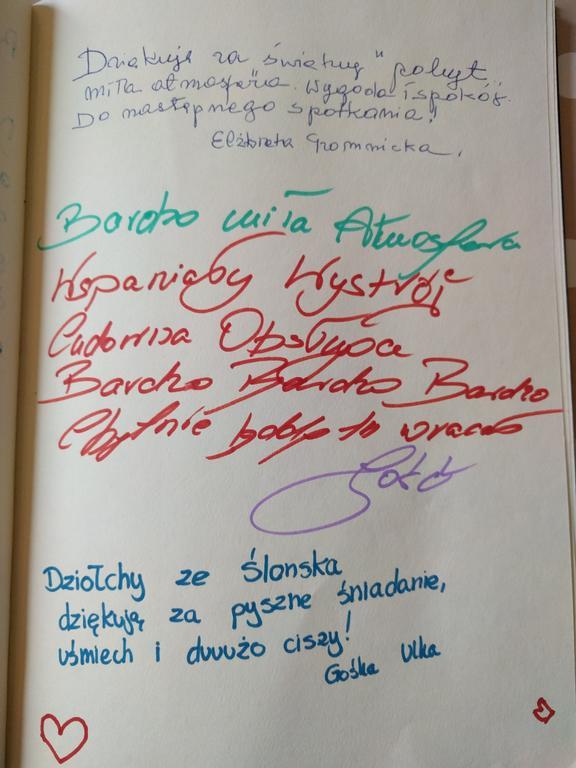 Dziakuję za świetny" pobyt
miła atmosfera. Wygoda i spokój.
Do następnego spotkania!
Elżbieta Gromnicka.
Bardzo miła Atmosfera
Wspaniały Wystrój
Cudowna Obsługa
Bardzo Bardzo Bardzo
Chętnie będę tu wracać
Gość
Dziołchy ze ślonska
dziękują za pyszne śniadanie,
uśmiech i duuużo ciszy!
Gośka Ulka